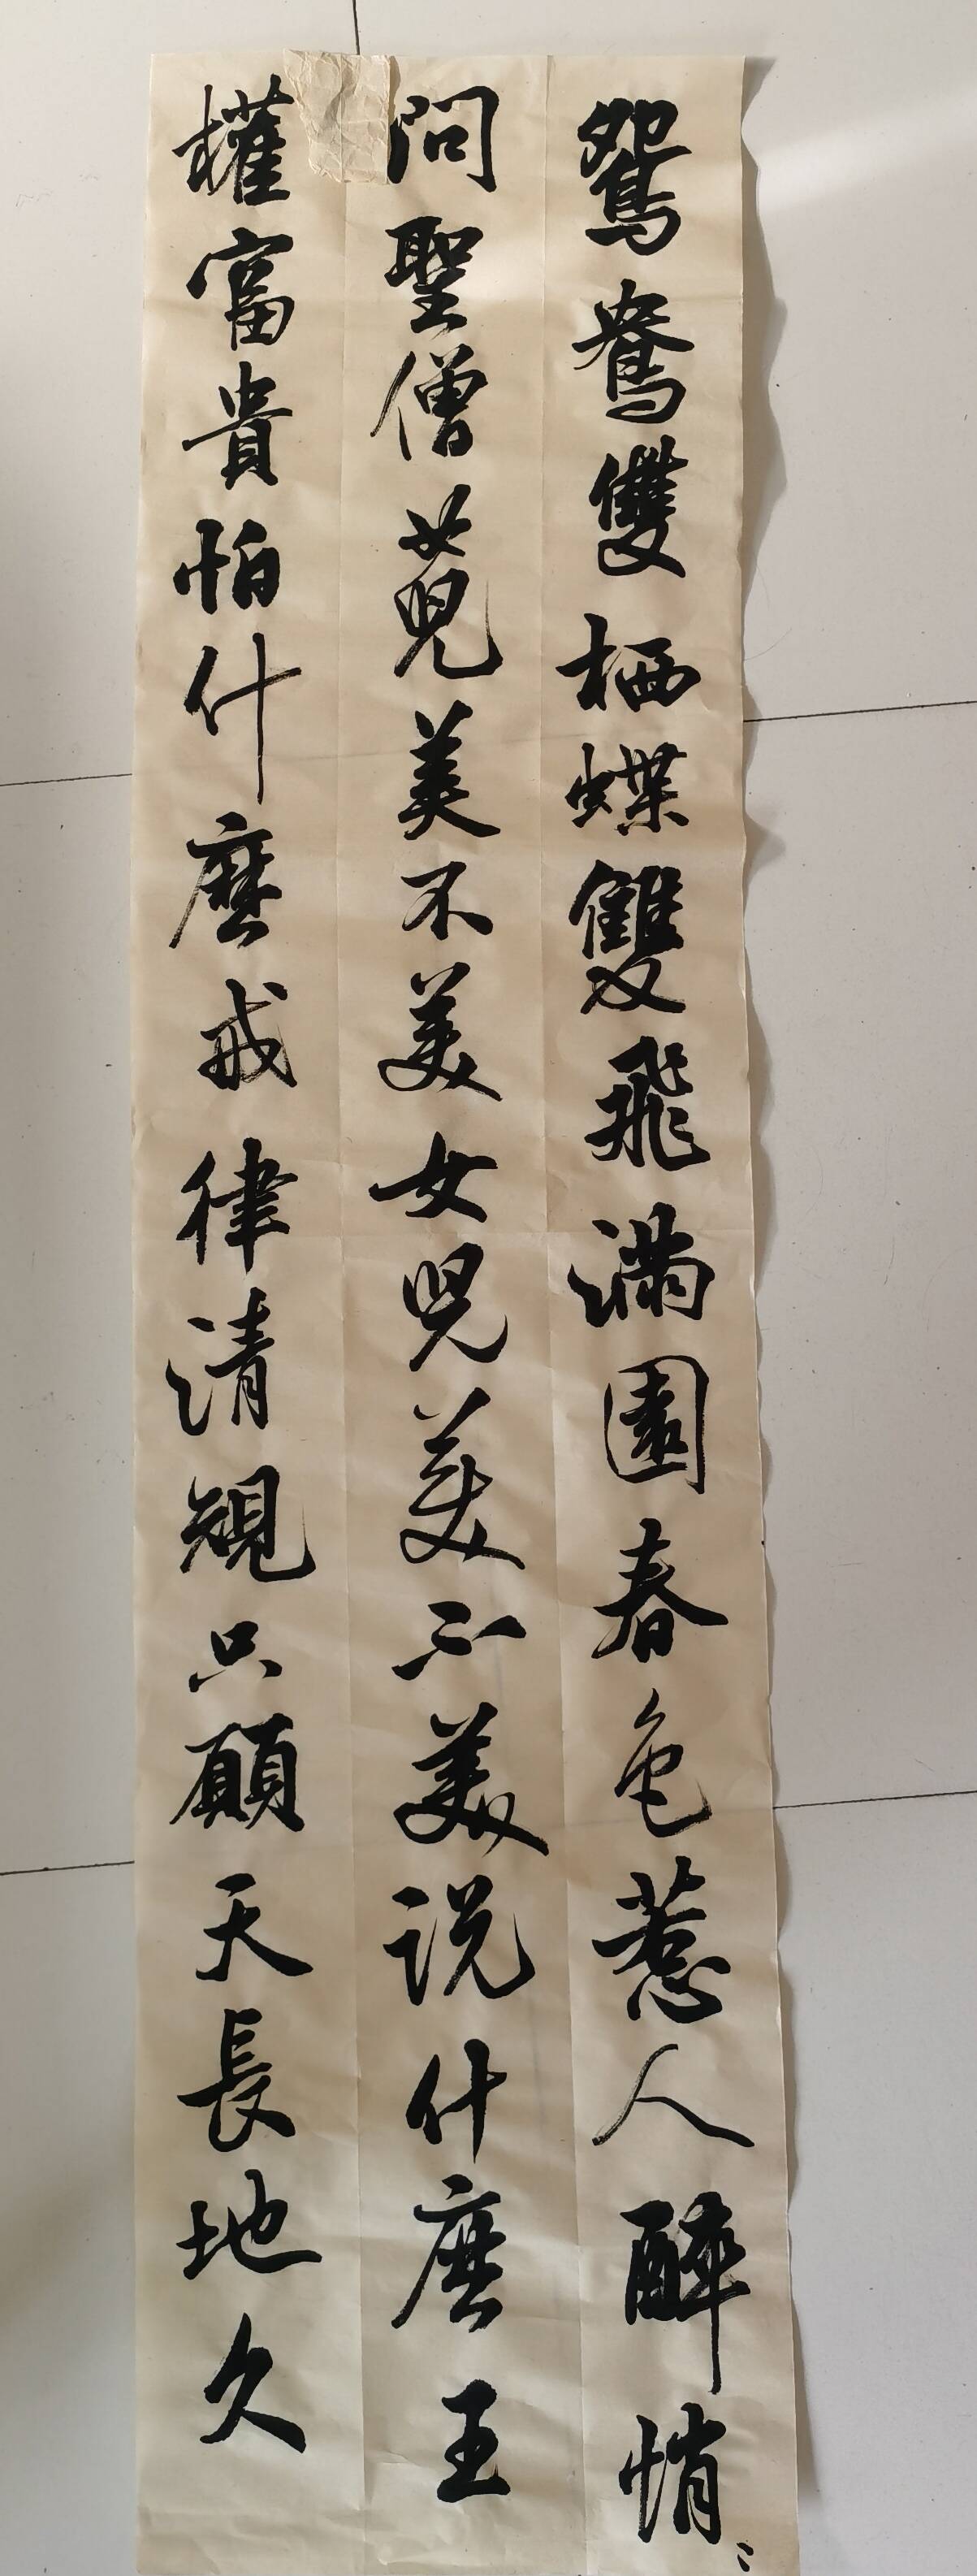 鸳鸯雙栖蝶雙飛滿園春色惹人醉悄〻
問聖僧女兒美不美女兒美不美説什麽王
權富貴怕什麽戒律清規只願天長地久